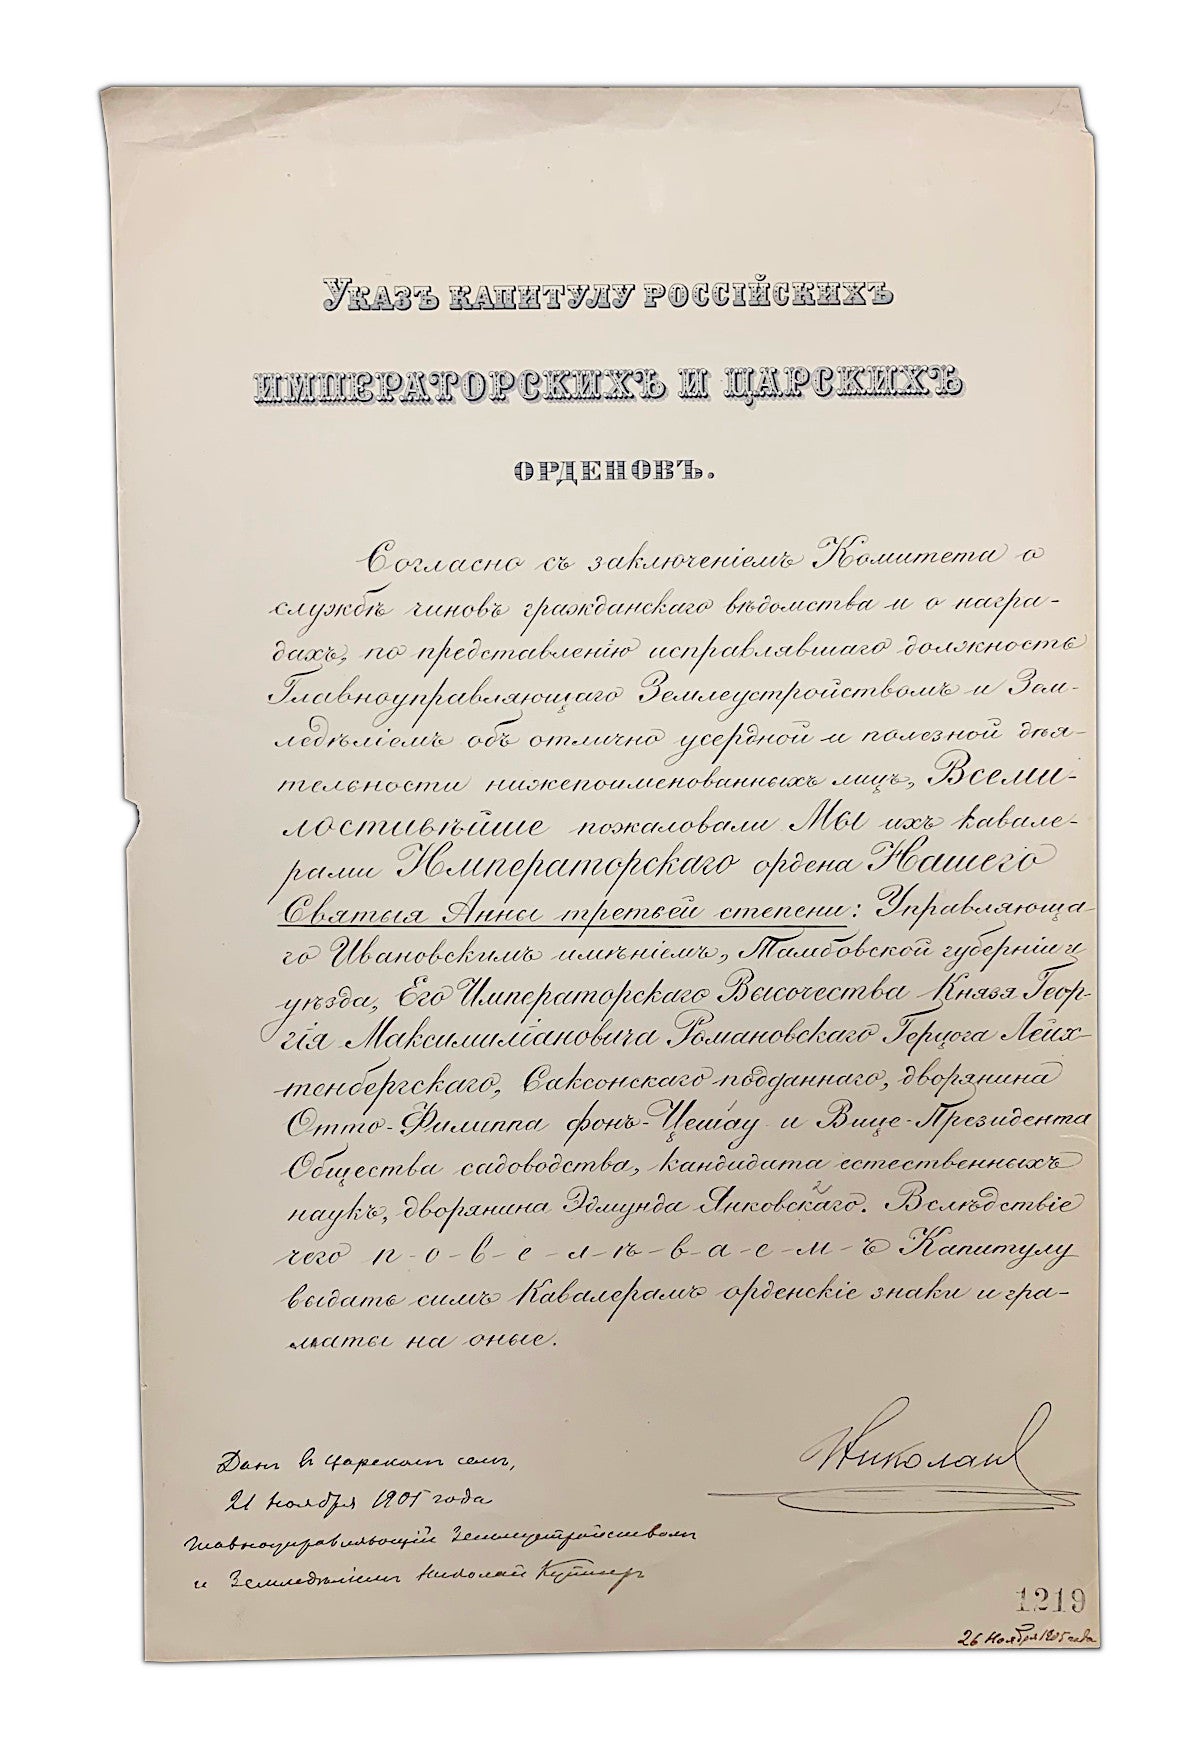 Указъ капитулу россійскихъ
императорскихъ и царскихъ
орденовъ.
Согласно съ заключеніемъ Комитета о
службѣ чиновъ гражданскаго вѣдомства и о награ-
дахъ, по представленію исправлявшаго должность
Главноуправляющаго Землеустройствомъ и Зем-
ледѣліемъ объ отлично усердной и полезной дѣя-
тельности нижепоименованныхъ лицъ, Всеми-
лостивѣйше пожаловали Мы ихъ кавале-
рами Императорскаго ордена Нашего
Святыя Анны третьей степени: Управляюща-
го Ивановскимъ имѣніемъ, Тамбовской губерніи и
уѣзда, Его Императорскаго Высочества Князя Геор-
гія Максимиліановича Романовскаго Герцога Лейх-
тенбергскаго, Саксонскаго подданнаго, дворянина
Отто-Филиппа фонъ-Цешау и Вице-Президента
Общества садоводства, кандидата естественныхъ
наукъ, дворянина Эдмунда Янковскаго. Вслѣдствіе
чего п-о-в-е-л-ѣ-в-а-е-м-ъ Капитулу
выдать симъ Кавалерамъ орденскіе знаки и гра-
маты на оные.
Николай
Данъ въ Царскомъ селѣ,
21 Ноября 1905 года
Главноуправляющій Землеустройствомъ
и Земледѣліемъ Николай Кутлеръ
1219
26 Ноября 1905 года